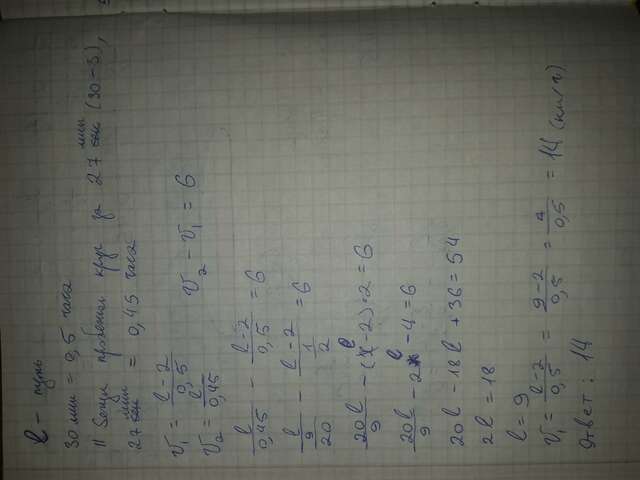 l – путь
30 мин = 0,5 часа
II бегун пробежал круг за 27 мин (30-3),
27 мин = 0,45 часа
V₁ = (l-2)/0,5
V₂ = l/0,45   V₂ - V₁ = 6
l/0,45 - (l-2)/0,5 = 6
l/(9/20) - (l-2)/(1/2) = 6
20l/9 - (l-2)·2 = 6
20l/9 - 2l - 4 = 6
20l - 18l + 36 = 54
2l = 18
l = 9
V₁ = (l-2)/0,5 = (9-2)/0,5 = 7/0,5 = 14 (км/ч)
Ответ: 14